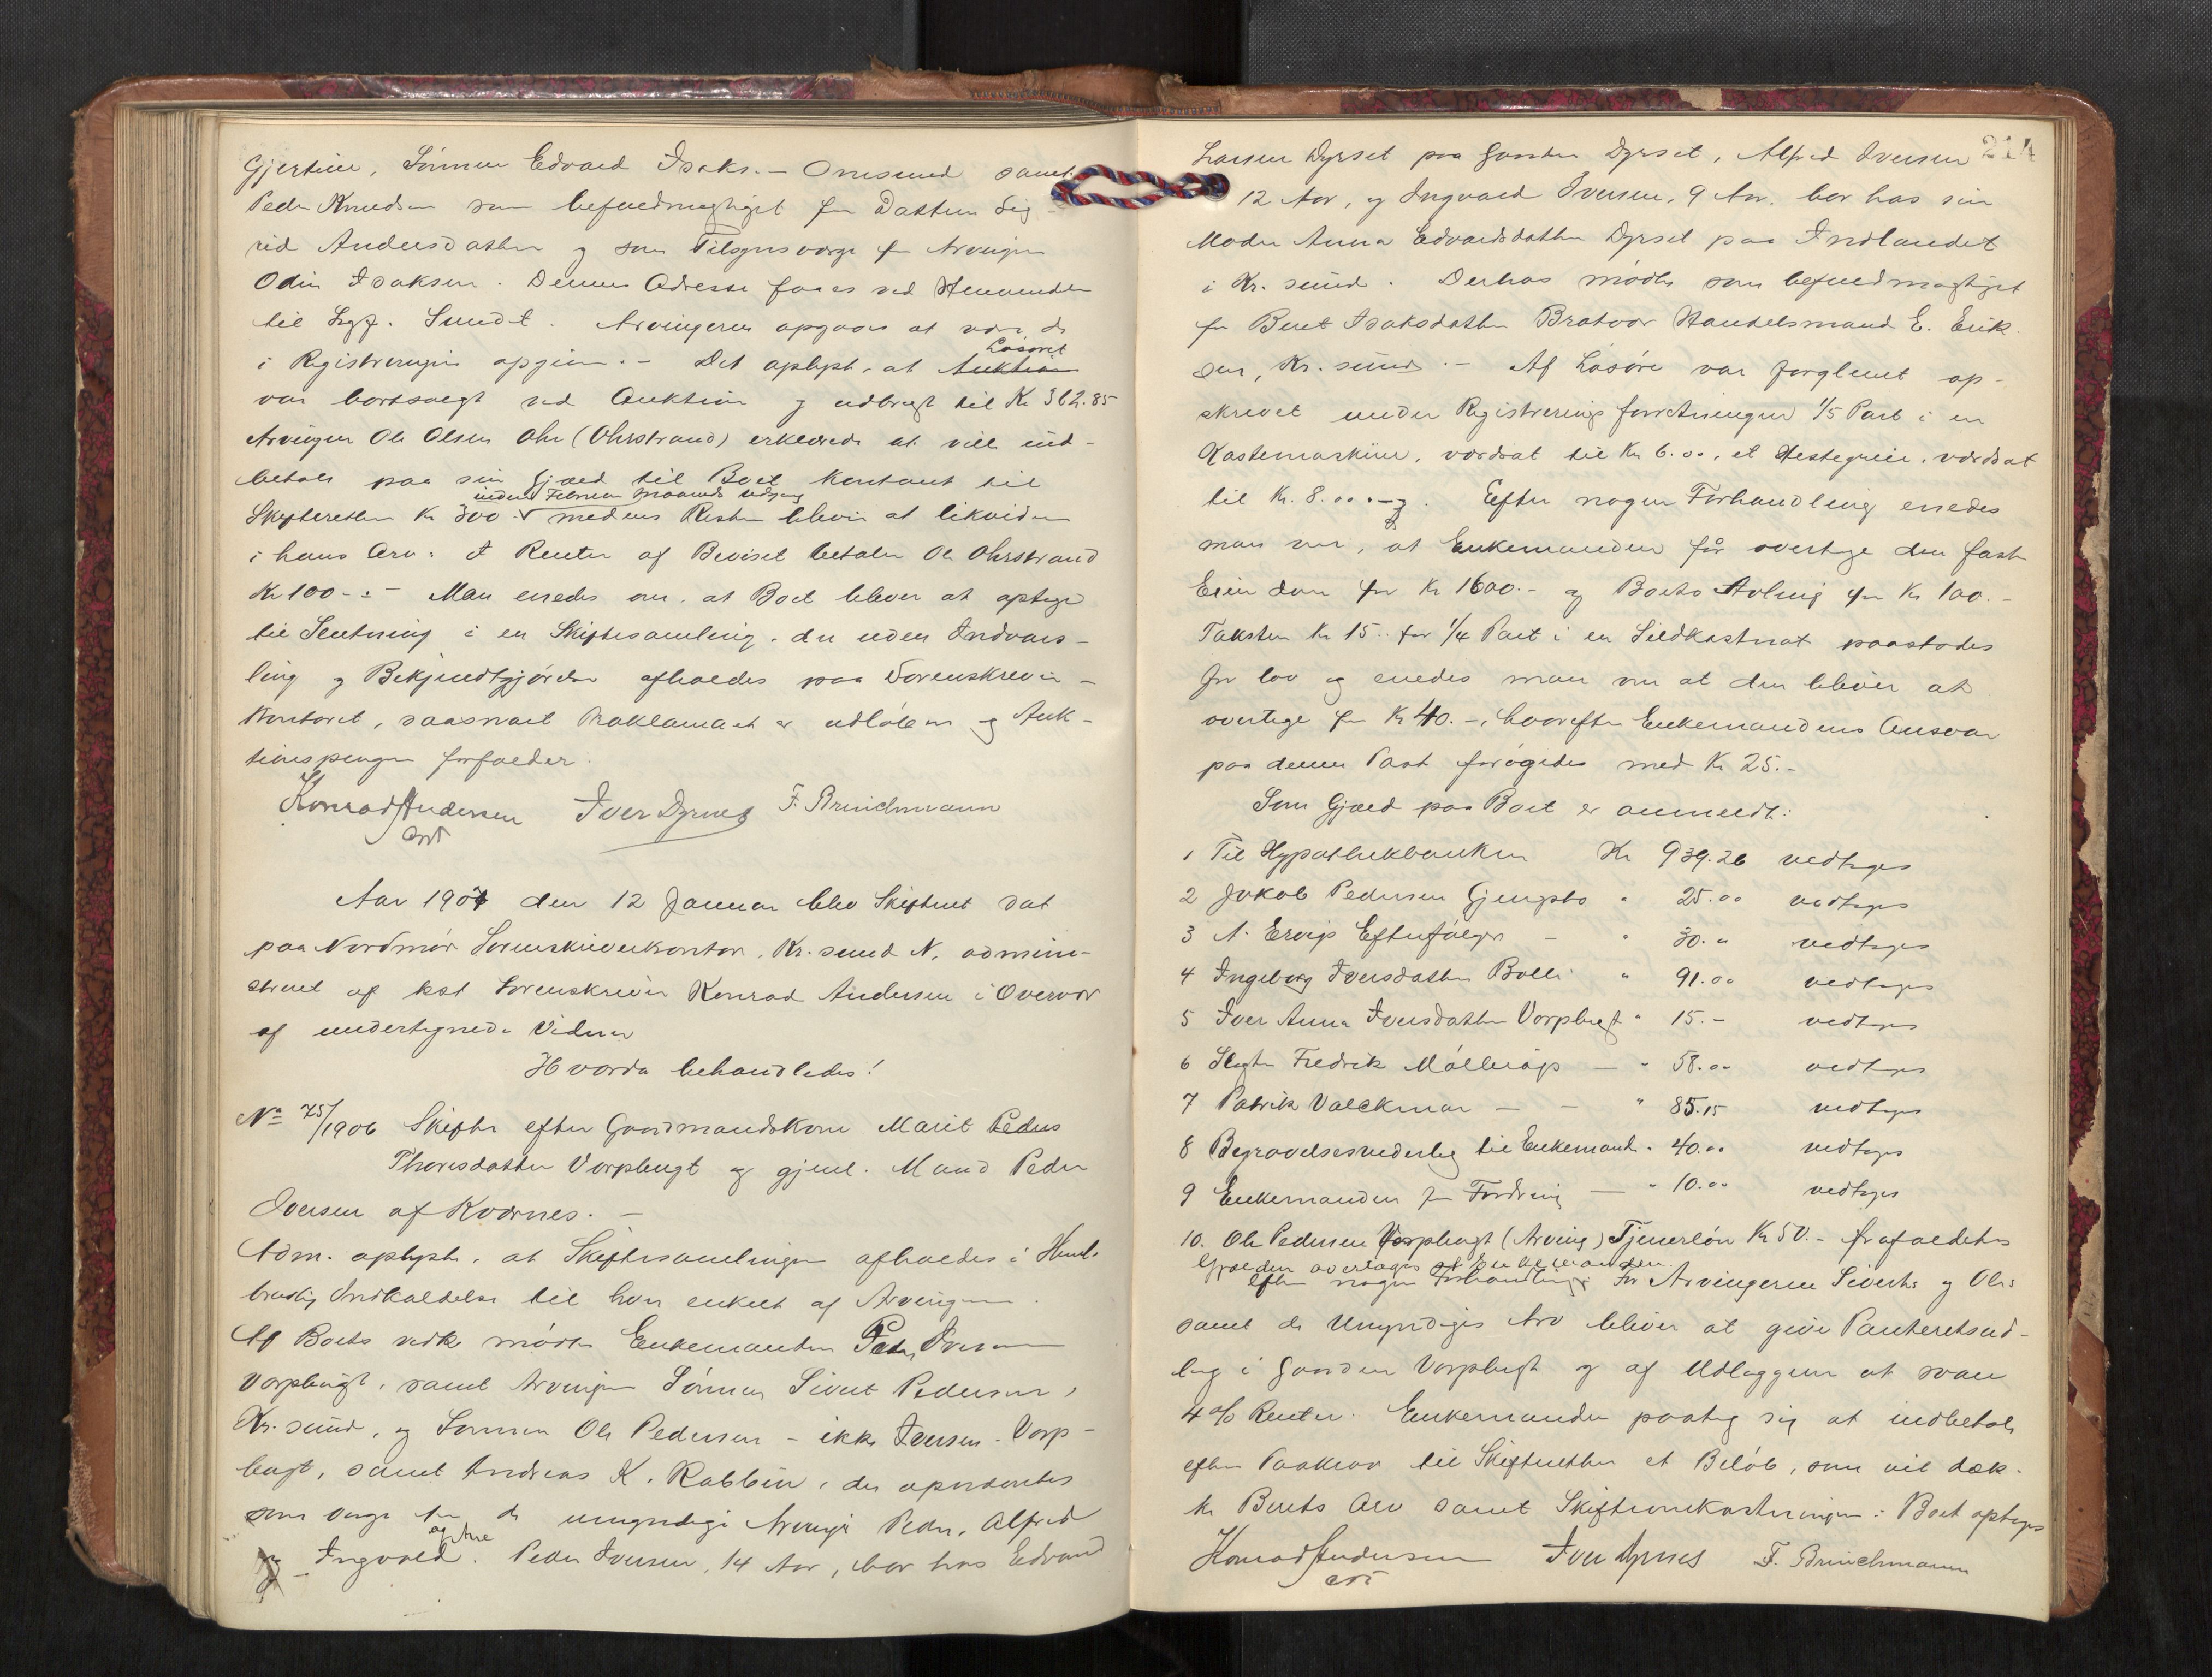 Gjertine, Sønnen Edvard Isaks. - Onesund samt
Peder Knudsen som befuldmægtiget for Datteren Sig-
rid Andersdatter og som Tilsynsværge for Arvingen
Odin Isaksen. Dennes Adresse faaes ved Henvendelse
til Sagf. Sundt. Arvingerne opgaves at være de
i Registreringen opgivne. - Det oplyst, at Auktion Løsøret
var bortsolgt ved Auktion og udbragt til Kr 362.85
Arvingen Ole Olsen Ohr (Ohrstrand) erklærede at ville ind-
betale paa sin Gjæld til Boet kontant til
inden Februar Maaneds Udgang
Skifteretten Kr 300 - medens Resten bliver at likvidere
i hans Arv. I Renter af Beviset betaler Ole Ohrstrand
Kr 100 - . - Man enedes om, at Boet bliver at optage
til Slutning i en Skiftesamling, der uden Indvars-
ling og Bekjendtgjørelse afholdes paa Sorenskriver-
kontoret, saasnart Proklamaet er udløben og Auk-
tionspengene forfalder.
Konrad Andersen Iver Dyrnes F. Brinchmann
cst
Aar 1907 den 12 Januar blev Skifteret sat
paa Nordmør Sorenskriverkontor, Kr.sund N, admini-
streret af kst Sorenskriver Konrad Andersen i Overvær
af undertegnede Vidner
Hvorda behandledes!
No 75/1906 Skifte efter Gaardmandskone Marit Peders
Thoresdatter Vorpbugt og gjenl. Mand Peder
Iversen af Kvernes. -
Adm. oplyste, at Skiftesamlingen afholdes i Henh.
til Indkaldelse til hver enkelt af Arvingerne.
Paa Boets vedk mødte Enkemanden Peder Iversen
Vorpbugt, samt Arvingen Sønnen Sivert Pedersen,
Kr.sund, og Sønnen Ole Pedersen - ikke Iversen - Vorp-
bugt, samt Andreas K. Rabben, der opnævntes
som Værge for de umyndige Arvinger Peder, Alfred
og Ingvald. Peder Iversen, 14 Aar, bor hos Edvard
214
Larsen Dyrset paa Gaarden Dyrset, Alfred Iversen
12 Aar, og Ingvard Iversen, 9 Aar, bor hos sin
Moder Anna Edvardsdatter Dyrset paa Indlandet
i Kr. sund. Derhos mødte som befuldmægtiget
for Beret Isaksdatter Bratvær Handelsmand E. Erik-
sen, Kr.sund. - Af Løsøre var forglemt op-
skrevet under Registreringsforretningen 1/5 Part i en
Kastemaskine, værdsat til Kr 6.00, et Hestegreie, værdsat
til Kr. 8.00. Efter nogen Forhandling enedes
man om, at Enkemanden får overtage den faste
Eiendom for Kr 1600.- og Boets Avling for Kr 100.-
Taksten Kr 15.- for 1/4 Part i en Sildkastnot paastodes
for lav og enedes man om at den bliver at
overtage for Kr 40.-, hvorefter Enkemandens Ansvar
paa denne Post forøgedes med Kr 25.-
Som Gjæld paa Boet er anmeldt:
1 Til Hypothekbanken Kr 939.26 vedtages
2 Jakob Pedersen Gjengstø " 25.00 vedtages
3 A. Ervigs Efterfølger - " 30.00 vedtages
4 Ingeborg Iversdatter Bolli " 91.00 vedtages
5 Iver Anna Iversdatter Vorpbugt " 15.- vedtages
6 Slagter Fredrik Møllerop - " 58.00 vedtages
7 Patrik Volckmar - - " 85.15 vedtages
8 Begravelsesvederlag til Enkemand. " 40.00 vedtages
9 Enkemanden for Fordring - " 10.00 vedtages
10. Ole Pedersen Vorpbugt (Arving) Tjenerløn Kr 50.- frafaldtes
Gjælden overtages af Enkemanden.
efter nogen Forhandling. For Arvingerne Siverts og Oles
samt de Umyndiges Arv bliver at give Panteretsud-
læg i Gaarden Vorpbugt og af Udlæggene at svare
4 % Renter. Enkemanden paatog sig at indbetale
efter Paakrav til Skifteretten et Beløb, som vil dæk-
ke Berets Arv samt Skifteomkostningerne. Boet optages
Konrad Andersen Iver Dyrnes F. Brinchmann
cst